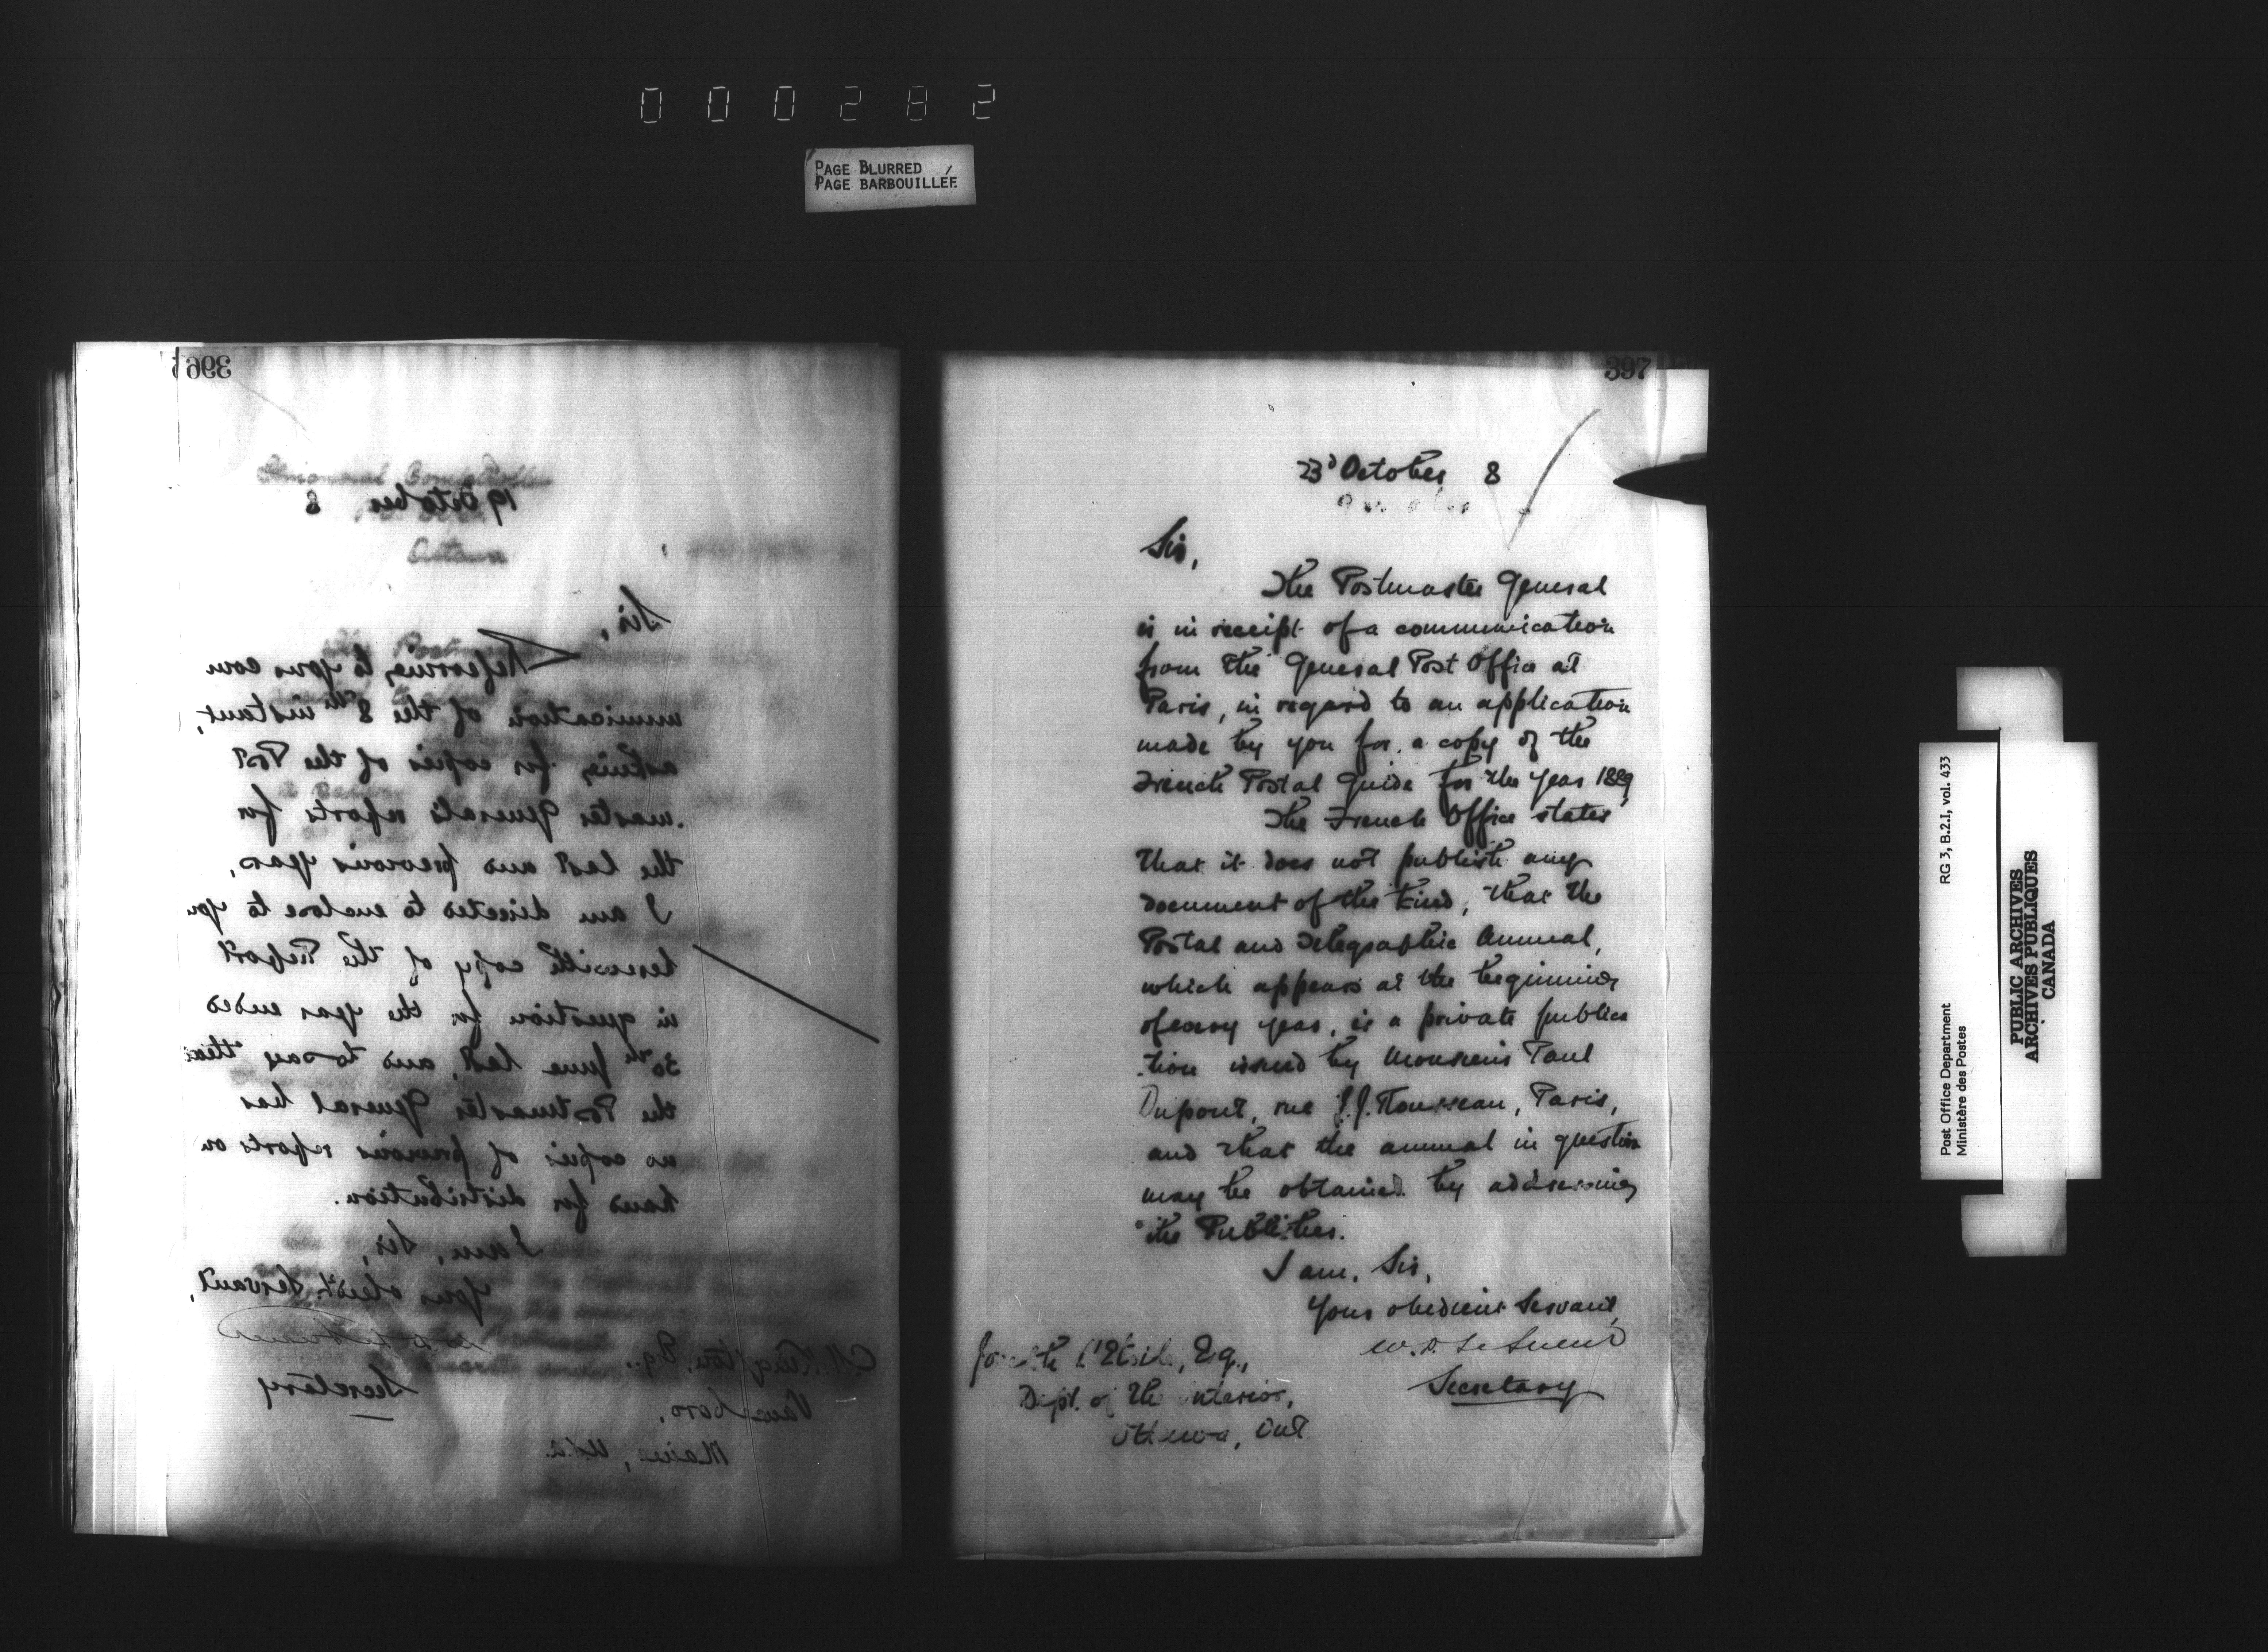 000282
PAGE BLURRED
PAGE BARBOUILLÉE
396
19 October 8
Ottawa
Sir,
Referring to your com
munication of the 8th instant,
asking for copies of the Post
master General's reports for
the last and previous years,
I am directed to enclose to you
herewith copy of the Report
in question for the year ended
30th June last, and to say that
the Postmaster General has
no copies of previous reports on
hand for distribution.
I am, Sir,
Your obedt. Servant,
Secretary
Kingston, Esq.,
Vanceboro,
Maine, U.S.A.
397
23d October 8
Sir,
The Postmaster General
is in receipt of a communication
from the General Post Office at
Paris, in regard to an application
made by you for a copy of the
French Postal Guide for the year 1889
The French Office states
that it does not publish any
document of the kind, that the
Postal and Telegraphic Annual,
which appears at the beginning
of every year, is a private publica
tion issued by Monsieur Paul
Dupont, rue J.J. Rousseau, Paris,
and that the annual in question
may be obtained by addressing
the Publisher.
I am, Sir,
Your obedient Servant,
W. D. Le Sueur
Secretary
Esq.,
Dept. of the Interior,
Ottawa, Ont
Post Office Department
Ministère des Postes
RG 3, B.2.I, vol. 433
PUBLIC ARCHIVES
ARCHIVES PUBLIQUES
CANADA